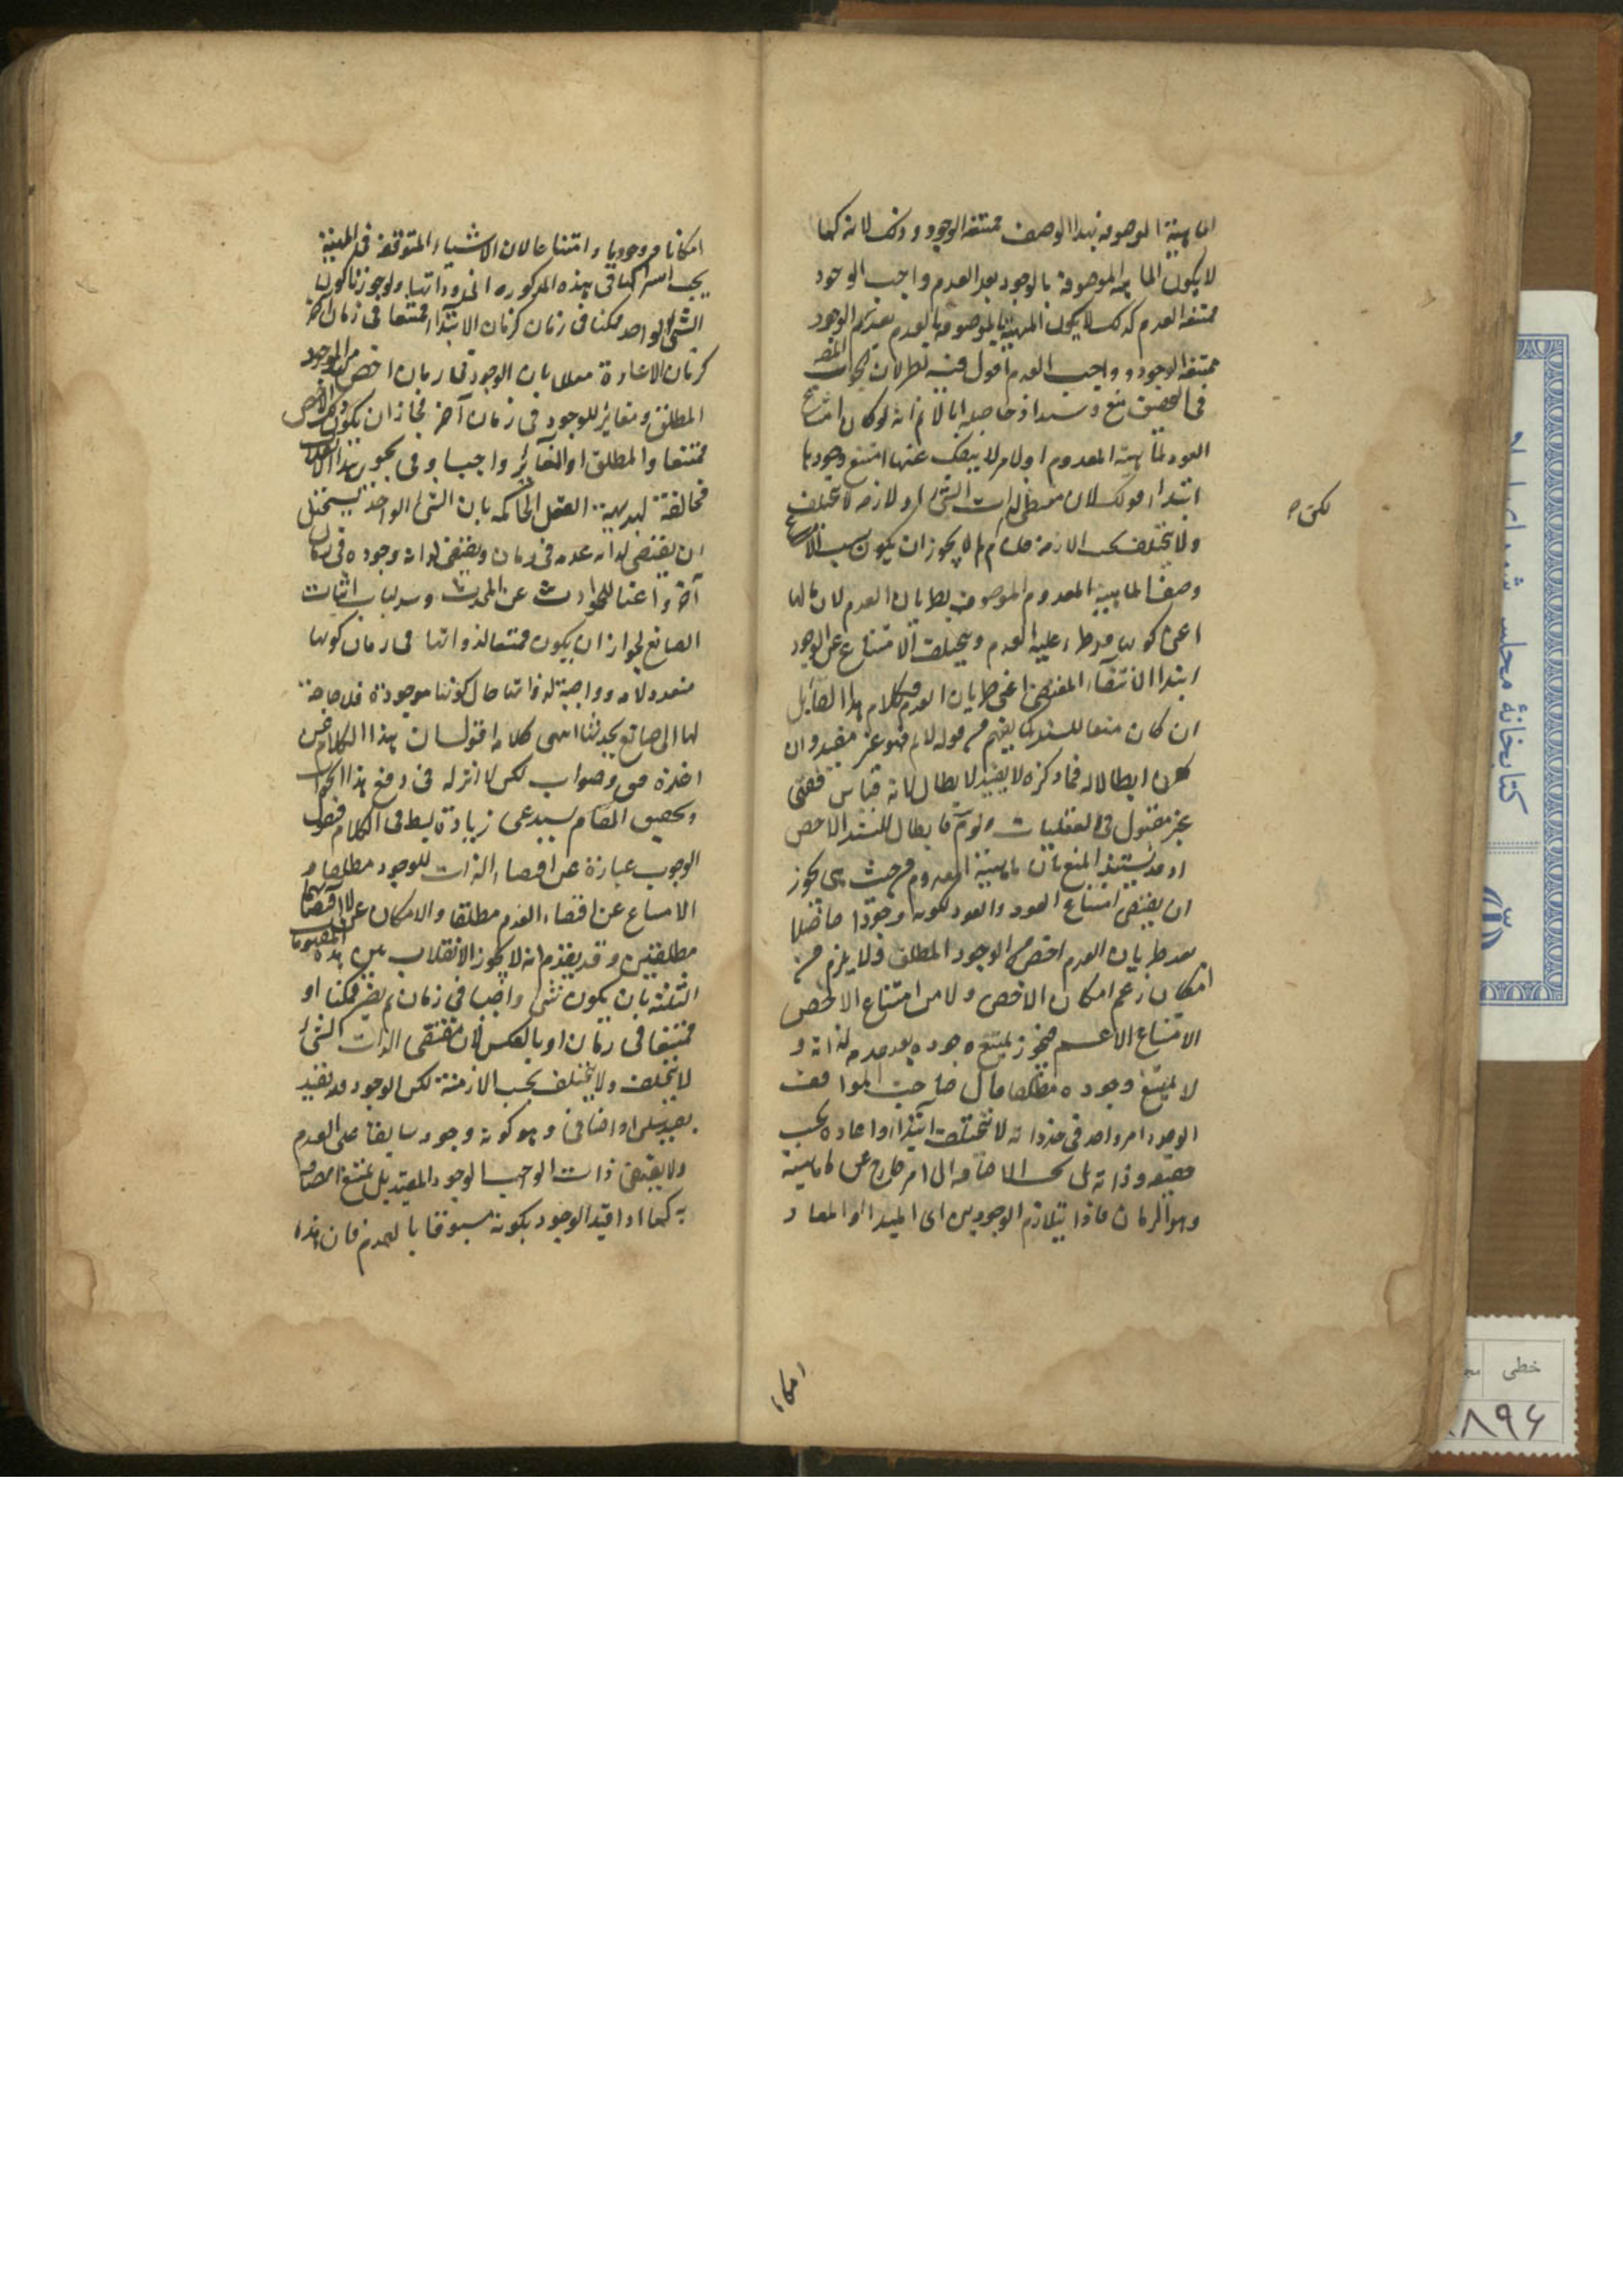 الماهية الموصوفة بهذا الوصف ممتنعة الوجود وذلك لانه كما
لا يكون الماهية الموصوفة بالوجود بعد العدم واجب الوجود
ممتنعة العدم كذلك لا يكون المهية الموصوفة بالعدم بعد الوجود
ممتنعة الوجود وواجب العدم اقول فيه نظر لان
في التحقيق منع وسند اذ حاصله انا لا نم انه لو كان امتناع
العود لماهية المعدوم او لامر لا ينفك عنها امتنع وجودها
ابتداء قولك لان مقتضى ذات الشئ او لازمه لا يتخلف
ولا يختلف بحسب الازمنة قلنا لم لا يجوز ان يكون سبب الامتناع
وصف الماهية المعدوم الموصوف بطريان العدم
اعنى كونها قد طرء عليه العدم ويتخلف الامتناع عن الوجود
ابتداء لانتفاء المقتضى اعنى طريان العدم فكلام هذا القائل
ان كان منعا للسند كما يفهم من قوله لا نم فهو غير مفيد وان
كان ابطالا له فما ذكره لا يفيد الابطال لانه قياس فقهى
غير مقبول في العقليات ولو تم فابطال للسند الاخص
اذ قد يستند المنع بان ماهية المعدوم من حيث هى يجوز
ان يقتضى امتناع العود والعود لكونه وجودا حاصلا
بعد طريان العدم اخص من الوجود المطلق ولا يلزم من
امكان الاعم امكان الاخص ولا من امتناع الاخص
الامتناع الاعم فيجوز يمتنع وجوده بعد عدمه لذاته و
لا يمتنع وجوده مطلقا قال صاحب المواقف
الوجود امر واحد في حد ذاته لا يختلف ابتداء واعادة بحسب
حقيقته وذاته بل بحسب الاضافة الى امر خارج عن الماهية
وهو الزمان فاذا يتلازم الوجودين اى المبدا والمعاد
لكن
امكانا
امكانا ووجوبا وامتناعا لان الاشياء المتوقفة في المهية
يجب اشتراكها في هذه المذكورة ولو جوزنا كون
الشئ الواحد ممكنا في زمان كزمان الابتداء ممتنعا في زمان آخر
كزمان الاعادة معللا بان الوجود في زمان اخص من الموجود
المطلق ومغاير للوجود في زمان آخر فجاز ان يكون الاخص
ممتنعا والمطلق او المغاير واجبا وفى تجويز هذا
مخالفة لبديهة العقل الحاكمة بان الشئ الواحد يستحيل
ان يقتضى لذاته عدمه في زمان ويقتضى لذاته وجوده في زمان
آخر واغنا للحوادث عن المحدث وسد لباب اثبات
الصانع لجواز ان يكون ممتنعا لذواتها في زمان كونها
معدومة وواجبة لذواتها حال كونها موجودة فلا حاجة
لها الى صانع يحدثها انتهى كلامه اقول ان هذا الكلام من
اخره حق وصواب لكن لا اثر له في دفع هذا الجواب
وتحقيق المقام يستدعى زيادة بسط في الكلام فنقول
الوجوب عبارة عن اقتضاء الذات للوجود مطلقا و
الامتناع عن اقتضاء العدم مطلقا والامكان عن لا اقتضائهما
مطلقين وقد تقدم انه لا يجوز الانقلاب بين هذه المفهومات
الثلثة بان يكون شئ واجبا في زمان ثم يصير ممكنا او
ممتنعا في زمان او بالعكس لان مقتضى الذات الشئ
لا يتخلف ولا يختلف بحسب الازمنة لكن الوجود قد يقيد
بقيد سلبى او اضافى وهو كونه وجود سابقا على العدم
ولا يقتضى ذات الواجب الوجود المقيد بل يمتنع اتصافه
به كما اذا قيد الوجود بكونه مسبوقا بالعدم فان هذا
كتابخانهٔ مجلس شورای
خطی
۸۹۶